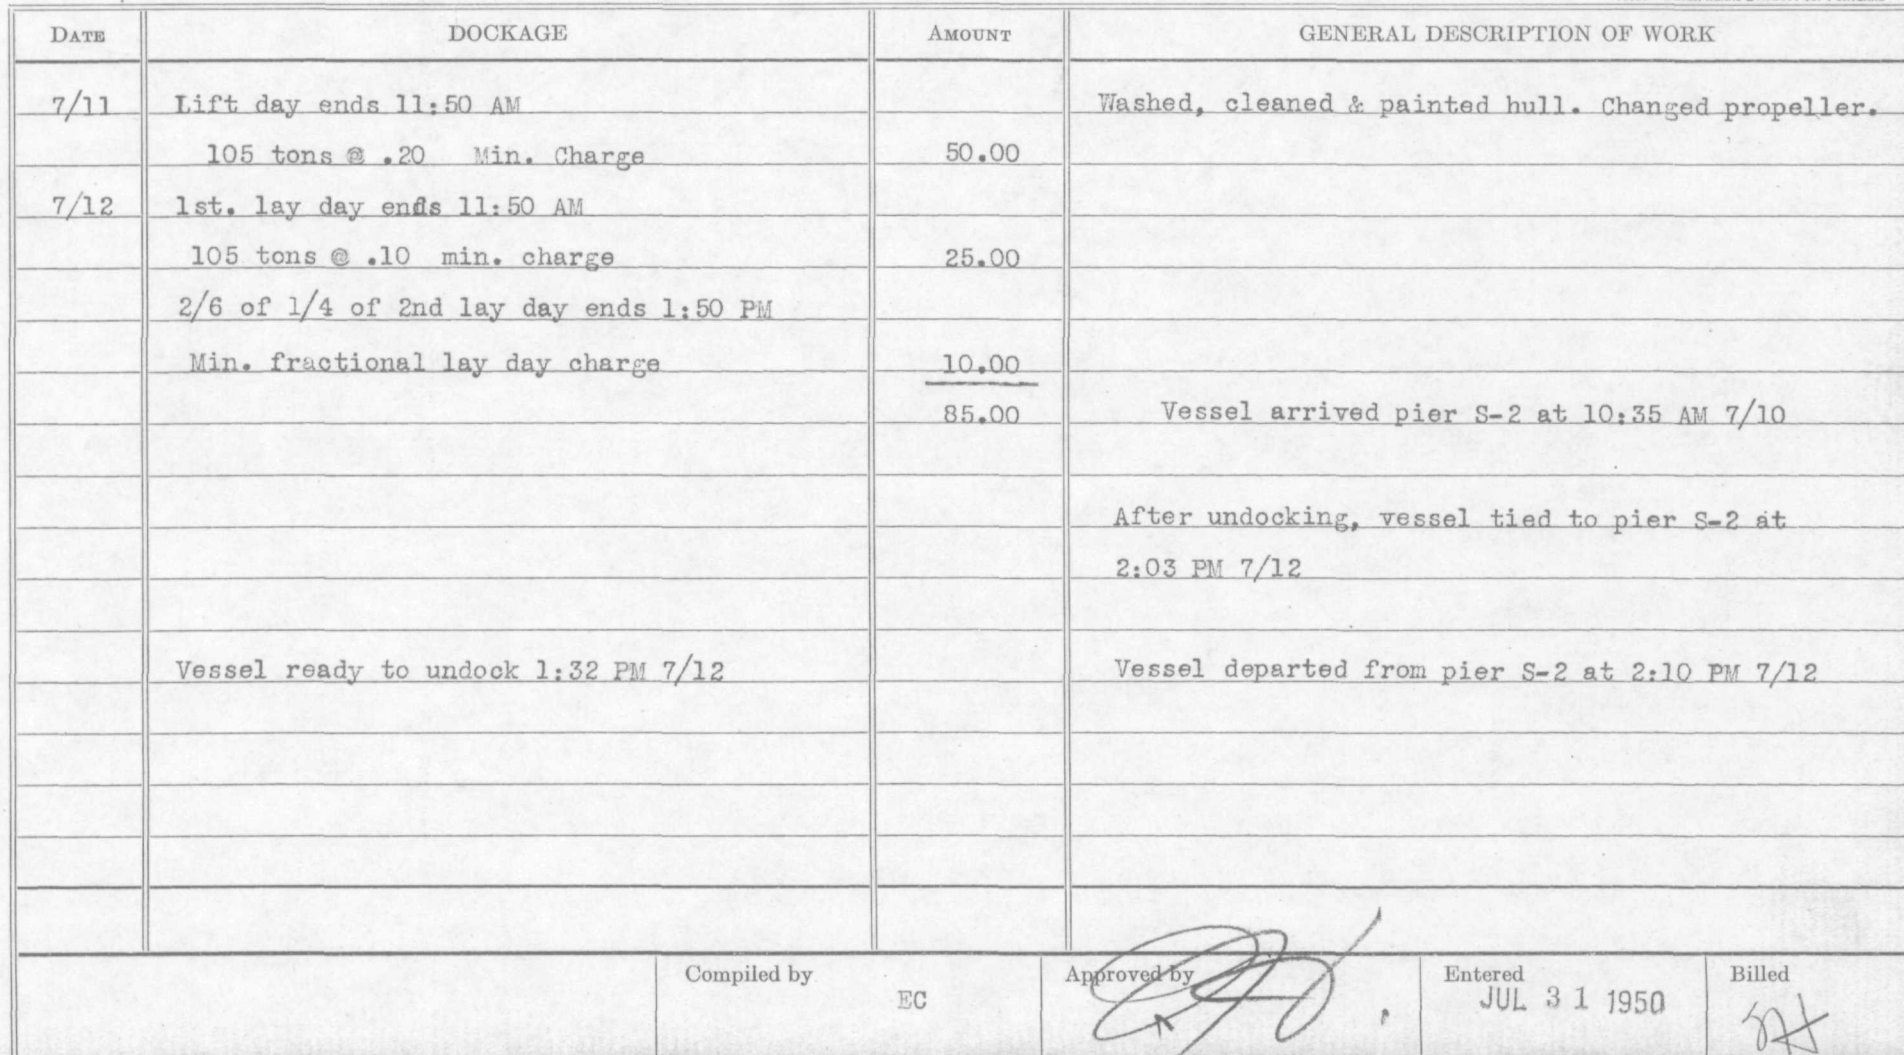 DATE DOCKAGE AMOUNT GENERAL DESCRIPTION OF WORK
7/11 Lift day ends 11:50 AM Washed, cleaned & painted hull. Changed propeller.
105 tons @ .20 Min. Charge 50.00
7/12 1st. lay day ends 11:50 AM
105 tons @ .10 min. charge 25.00
2/6 of 1/4 of 2nd lay day ends 1:50 PM
Min. fractional lay day charge 10.00
85.00 Vessel arrived pier S-2 at 10:35 AM 7/10
After undocking, vessel tied to pier S-2 at
2:03 PM 7/12
Vessel ready to undock 1:32 PM 7/12 Vessel departed from pier S-2 at 2:10 PM 7/12
Compiled by Approved by Entered Billed
EC JUL 31 1950